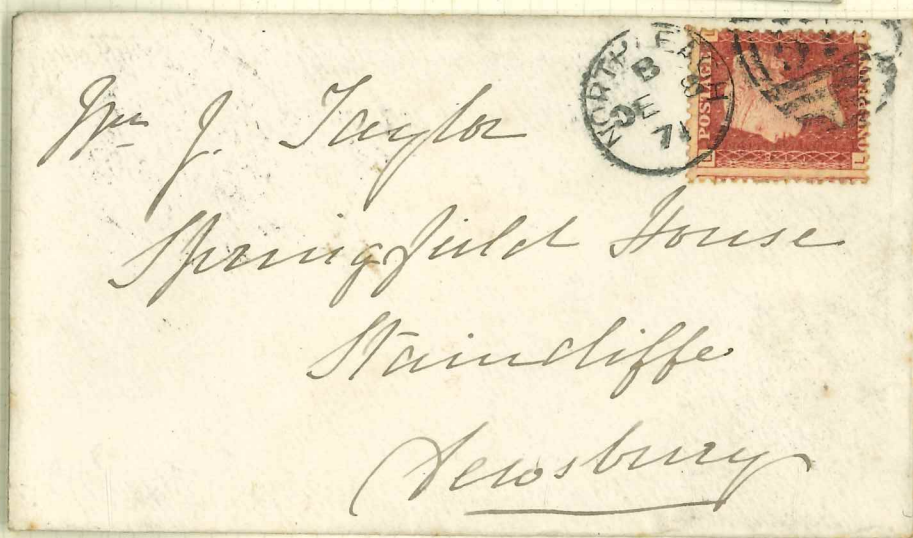 NORTHLEACH
B
DE 8
71
POSTAGE
ONE PENNY
L
L
Wm J. Taylor
Springfield House
Staincliffe
Dewsbury